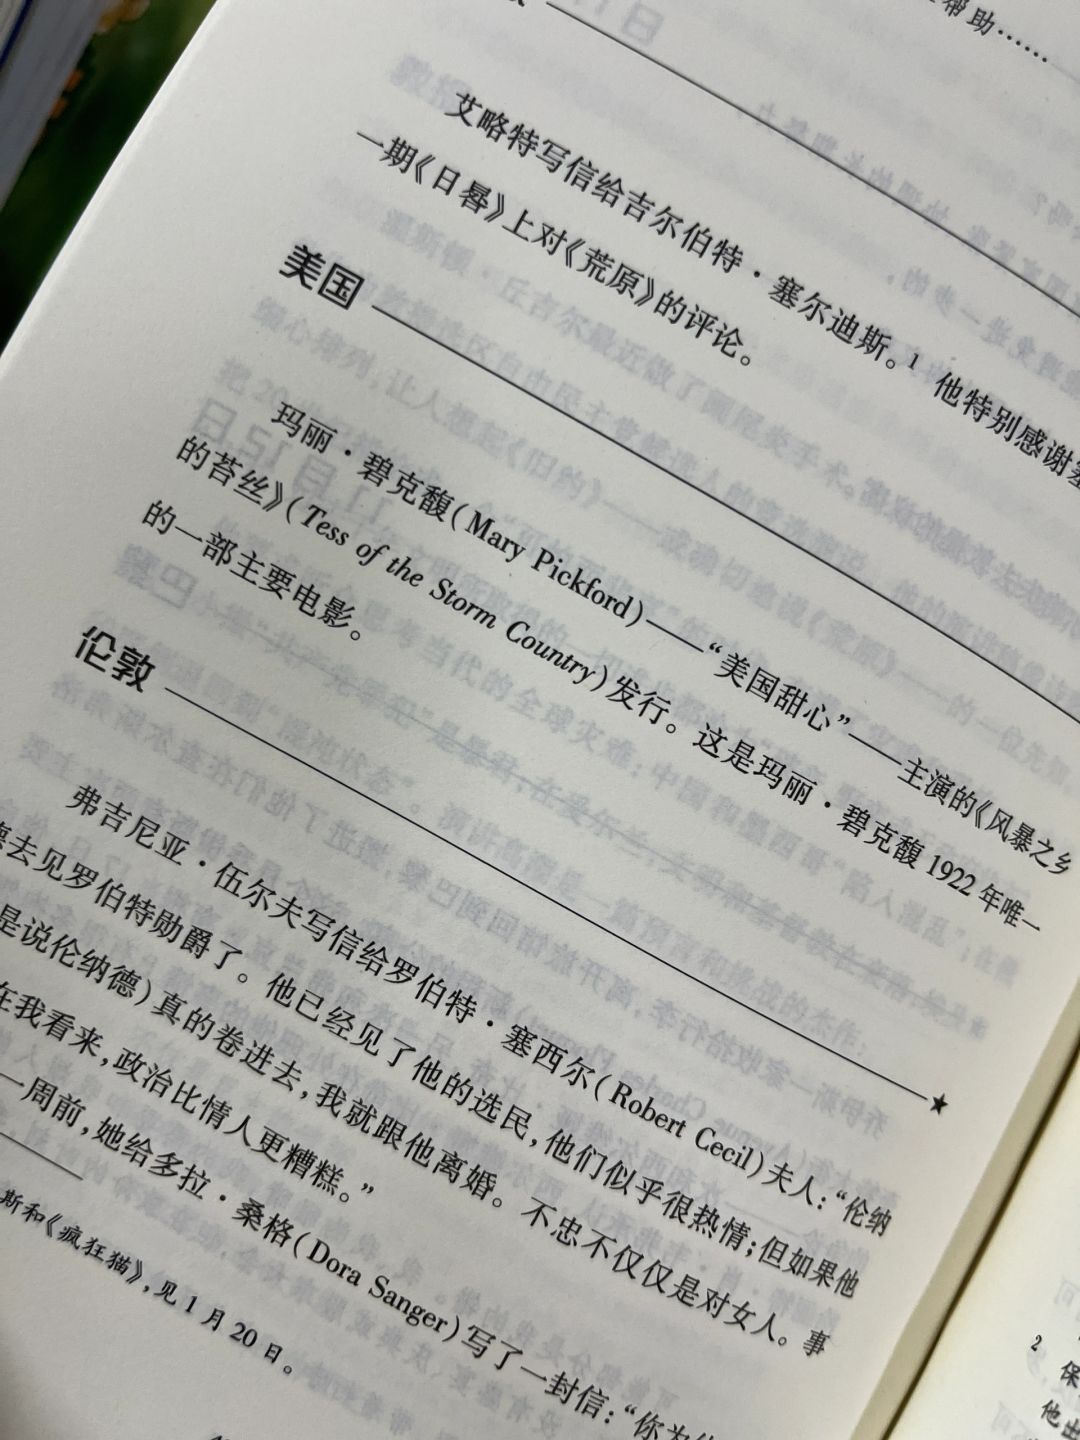 帮助……
艾略特写信给吉尔伯特·塞尔迪斯。¹ 他特别感谢塞
一期《日晷》上对《荒原》的评论。
美国
玛丽·碧克馥(Mary Pickford)——“美国甜心”——主演的《风暴之乡
的苔丝》(Tess of the Storm Country)发行。这是玛丽·碧克馥 1922 年唯一
的一部主要电影。
伦敦
★
弗吉尼亚·伍尔夫写信给罗伯特·塞西尔(Robert Cecil)夫人：“伦纳
德去见罗伯特勋爵了。他已经见了他的选民，他们似乎很热情；但如果他
是说伦纳德)真的卷进去，我就跟他离婚。不忠不仅仅是对女人。事
在我看来，政治比情人更糟糕。”
一周前，她给多拉·桑格(Dora Sanger)写了一封信：“你为
斯和《疯狂猫》，见 1 月 20 日。
2 保
他出